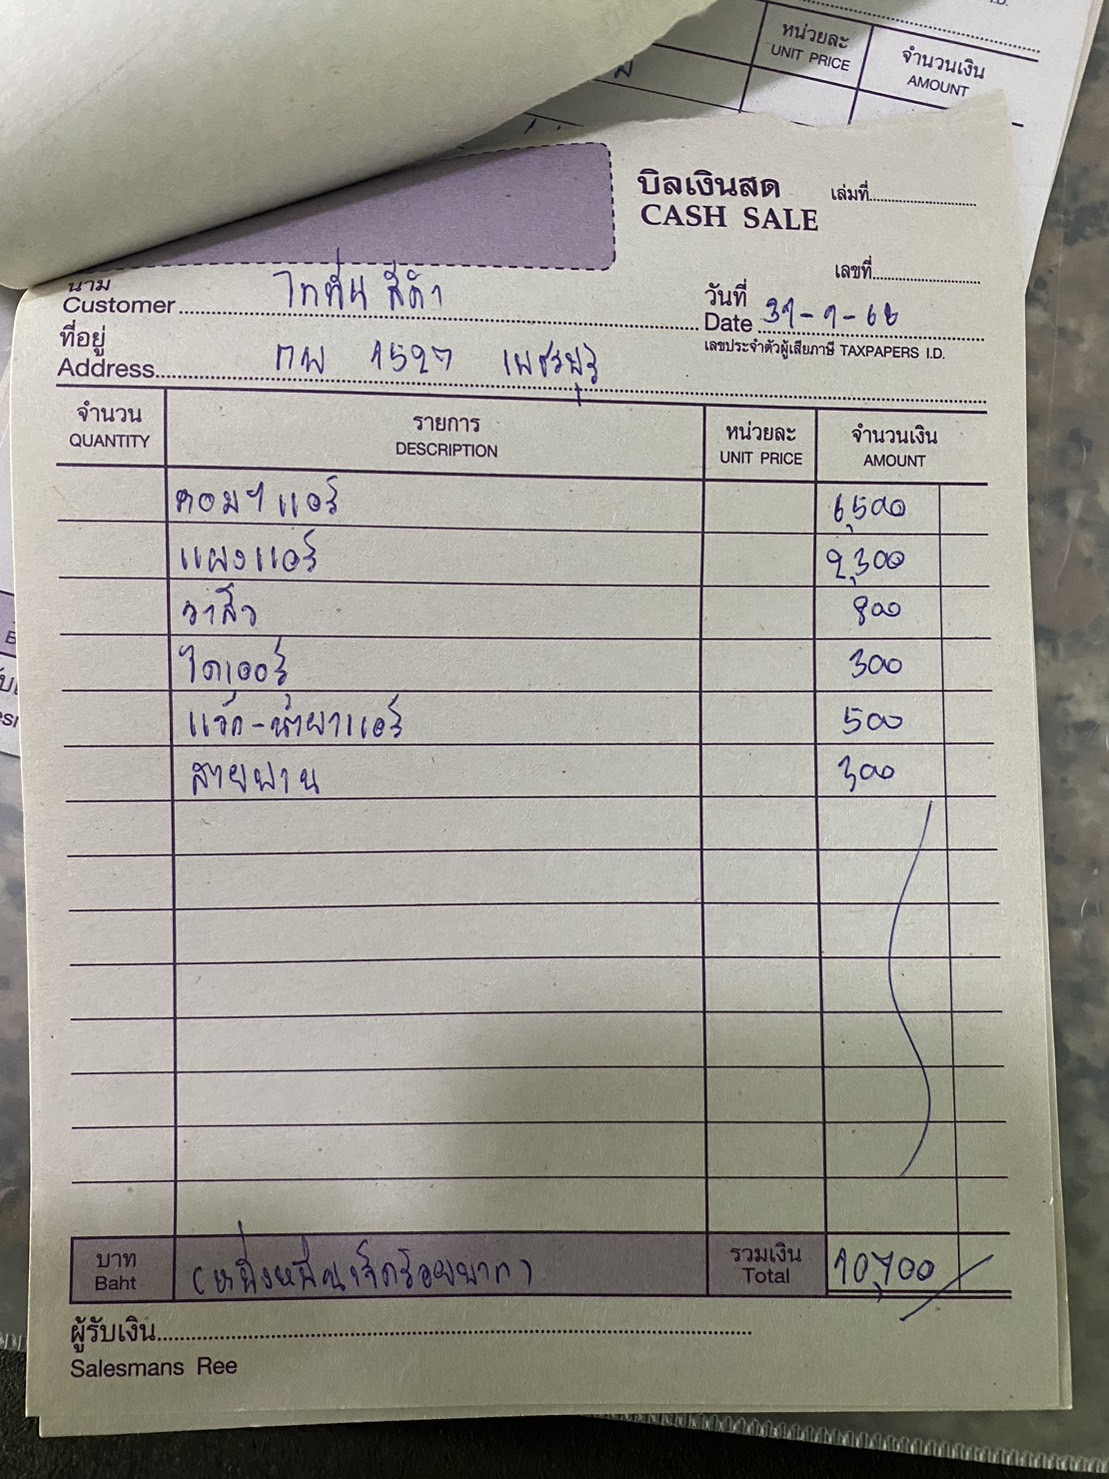 หน่วยละ
UNIT PRICE
จำนวนเงิน
AMOUNT
บิลเงินสด
CASH SALE
เล่มที่
เลขที่
นาม
Customer ไททัน สีดำ
วันที่
Date 31-7-68
เลขประจำตัวผู้เสียภาษี TAXPAPERS I.D.
ที่อยู่
Address กพ 1527 เพชรบุรี
จำนวน
QUANTITY
รายการ
DESCRIPTION
หน่วยละ
UNIT PRICE
จำนวนเงิน
AMOUNT
คอมฯแอร์ 6,500
แผงแอร์ 2,300
วาล์ว 800
ไดเออร์ 300
แว๊ก-น้ำยาแอร์ 500
สายพาน 300
บาท
Baht (หนึ่งหมื่นเจ็ดร้อยบาท)
รวมเงิน
Total 10,700
ผู้รับเงิน
Salesmans Ree